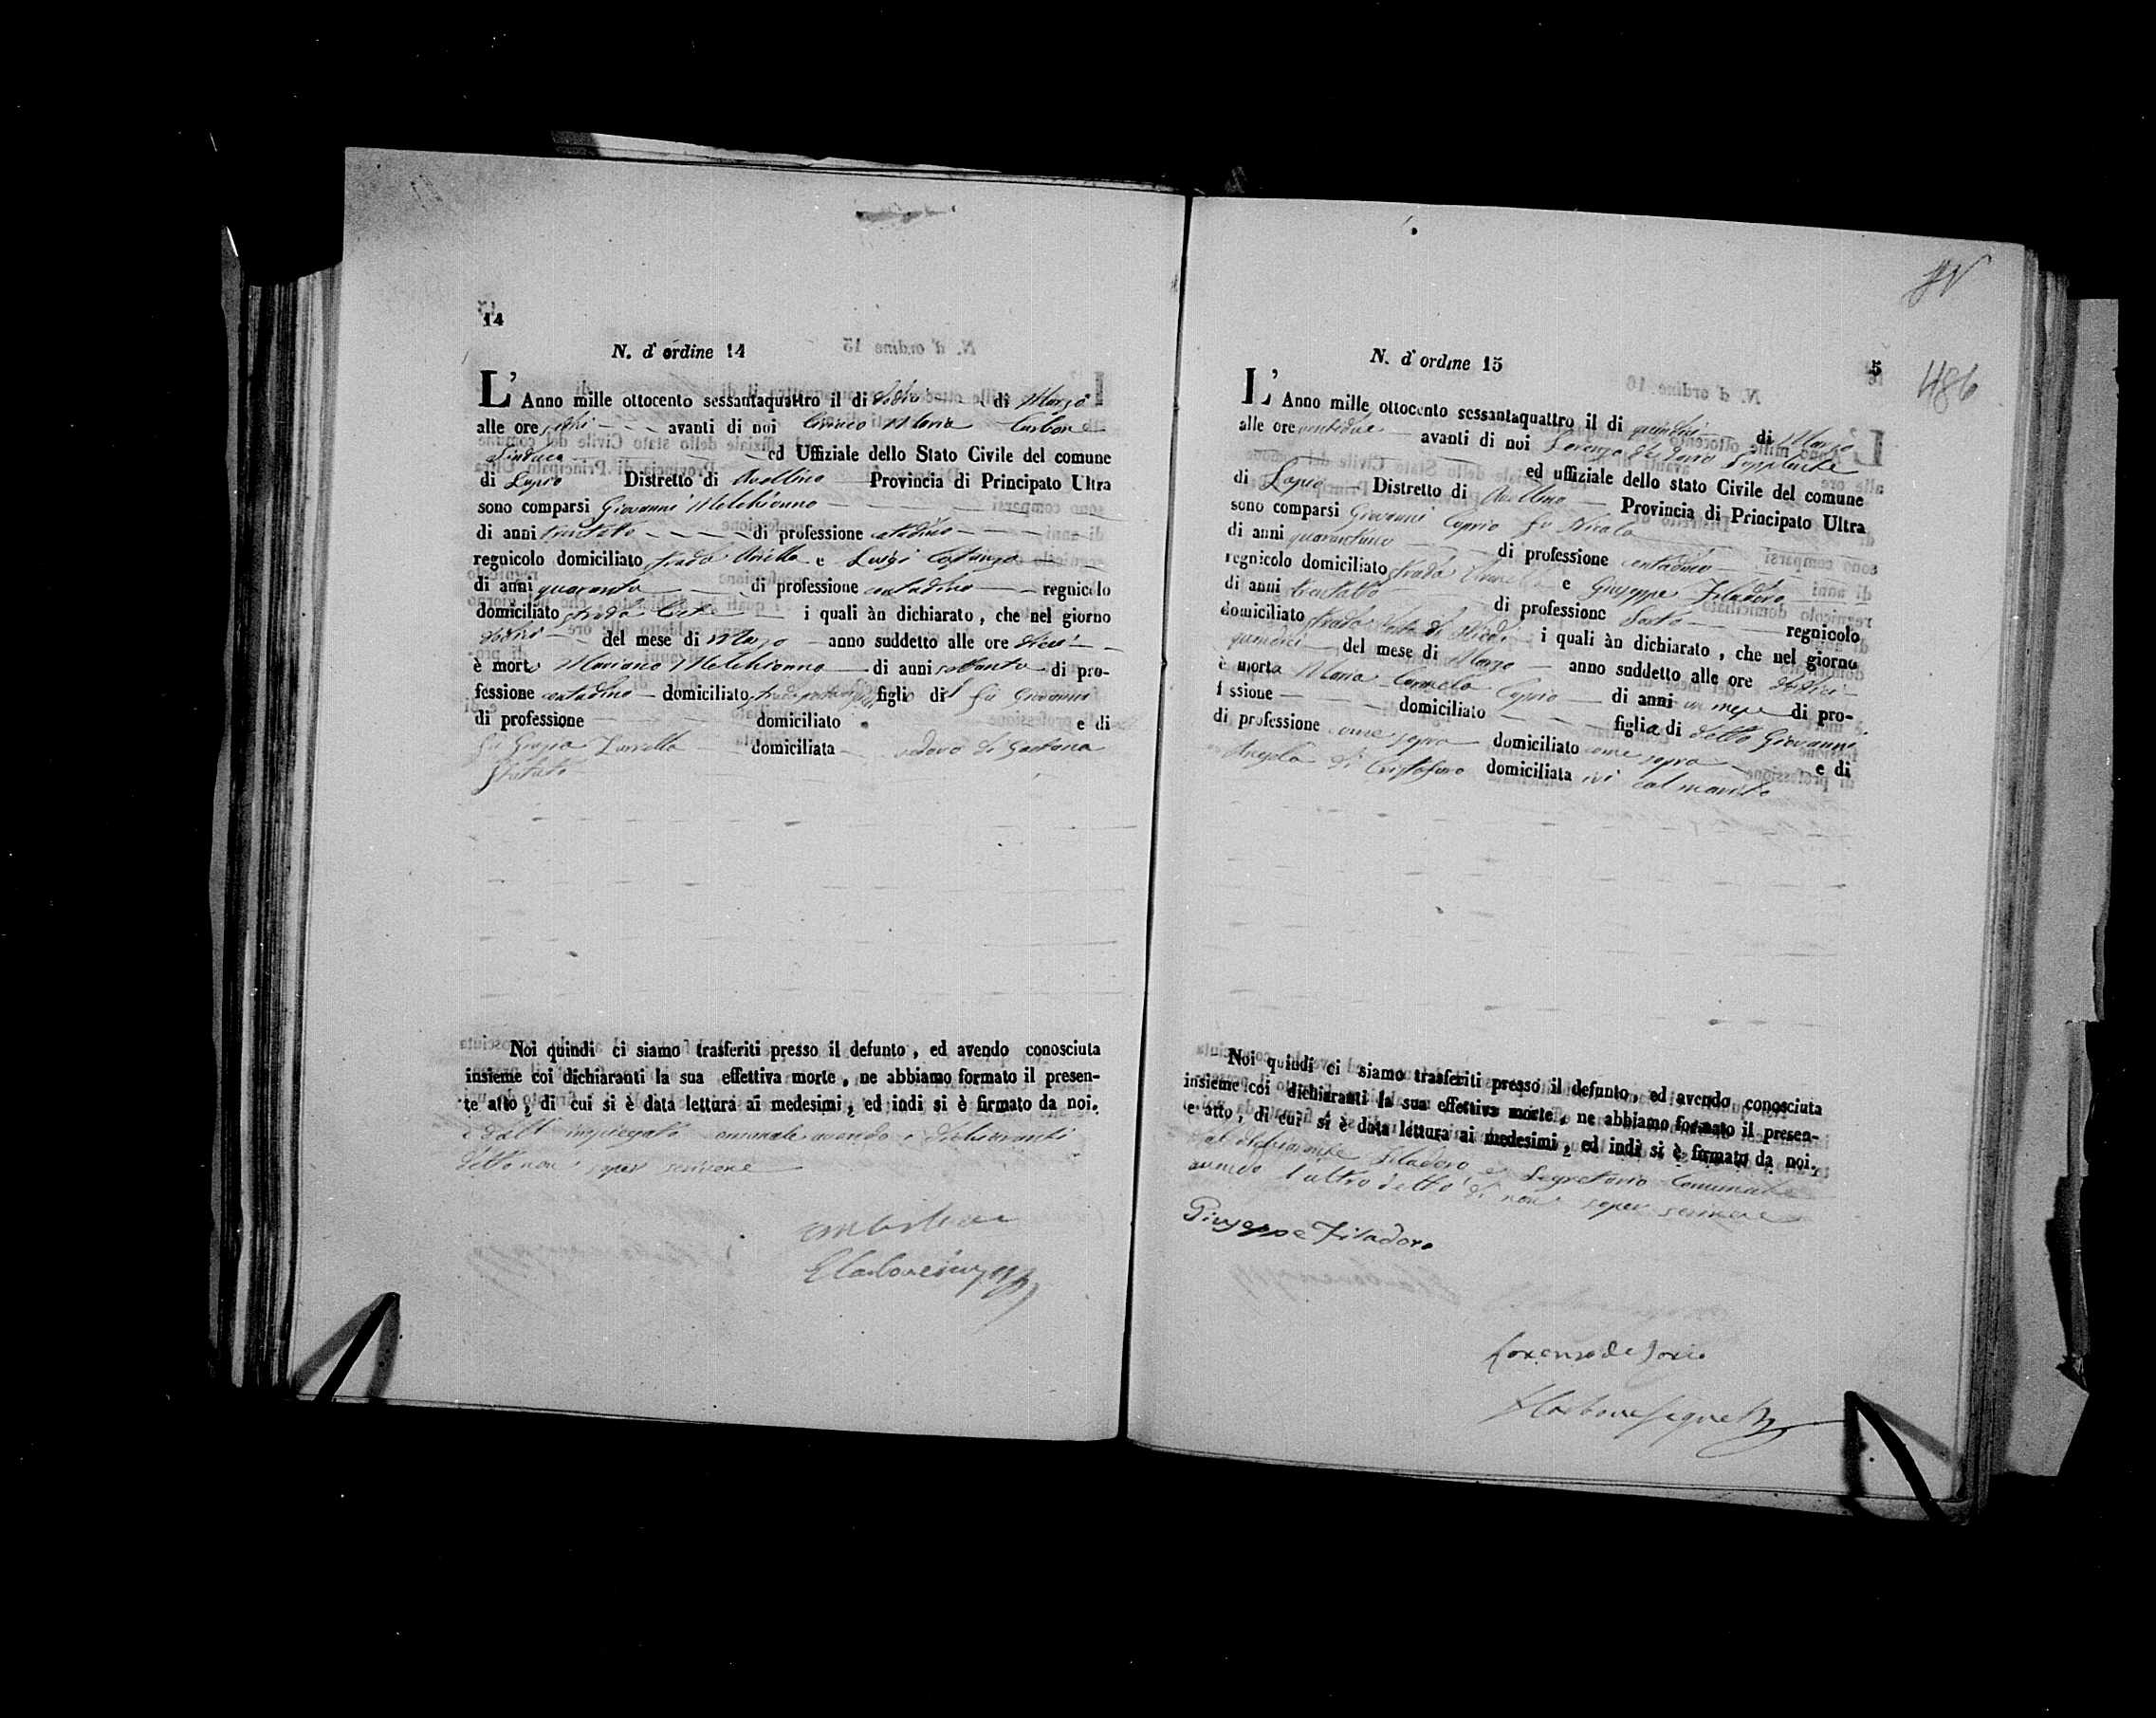 14
N. d' ordine 14
L' Anno mille ottocento sessantaquattro il di dodici di Marzo
alle ore avanti di noi Ciriaco Maria Carbone
Sindaco ed Uffiziale dello Stato Civile del comune
di Lapio Distretto di Avellino Provincia di Principato Ultra
sono comparsi Giovanni Melchionno
di anni trentotto di professione contadino
regnicolo domiciliato strada e Luigi Costanzo
di anni quaranta di professione contadino regnicolo
domiciliato strada i quali àn dichiarato, che nel giorno
dodici del mese di Marzo anno suddetto alle ore dieci
è morto Mariano Melchionno di anni settanta di pro-
fessione contadino domiciliato figlio di fu Giovanni
di professione domiciliato e di
fu Grazia domiciliata vedovo di Gaetana
Noi quindi ci siamo trasferiti presso il defunto, ed avendo conosciuta
insieme coi dichiaranti la sua effettiva morte, ne abbiamo formato il presen-
te atto, di cui si è data lettura ai medesimi, ed indi si è firmato da noi.
e dall' impiegato comunale avendo i dichiaranti
detto non saper scrivere
486
5
N. d' ordine 15
L' Anno mille ottocento sessantaquattro il di quindici di Marzo
alle ore ventidue avanti di noi Lorenzo de Iorio Supplente
ed uffiziale dello stato Civile del comune
di Lapio Distretto di Avellino Provincia di Principato Ultra
sono comparsi Giovanni Caprio fu Nicola
di anni quarantuno di professione contadino
regnicolo domiciliato strada e Giuseppe Filadoro
di anni trentotto di professione Sarto regnicolo
domiciliato strada i quali àn dichiarato, che nel giorno
quindici del mese di Marzo anno suddetto alle ore dodici
è morta Maria Carmela Caprio di anni un mese di pro-
fssione domiciliato figlia di detto Giovanni
di professione come sopra domiciliato come sopra e di
Angela di Cristofaro domiciliata ivi col marito
Noi quindi ci siamo trasferiti presso il defunto, ed avendo conosciuta
insieme coi dichiaranti la sua effettiva morte, ne abbiamo formato il presen-
e atto, di cui si è data lettura ai medesimi, ed indi si è firmato da noi,
dal dichiarante Filadoro e Segretario Comunale
avendo l'altro detto di non saper scrivere
Giuseppe Filadoro
Lorenzo de Iorio